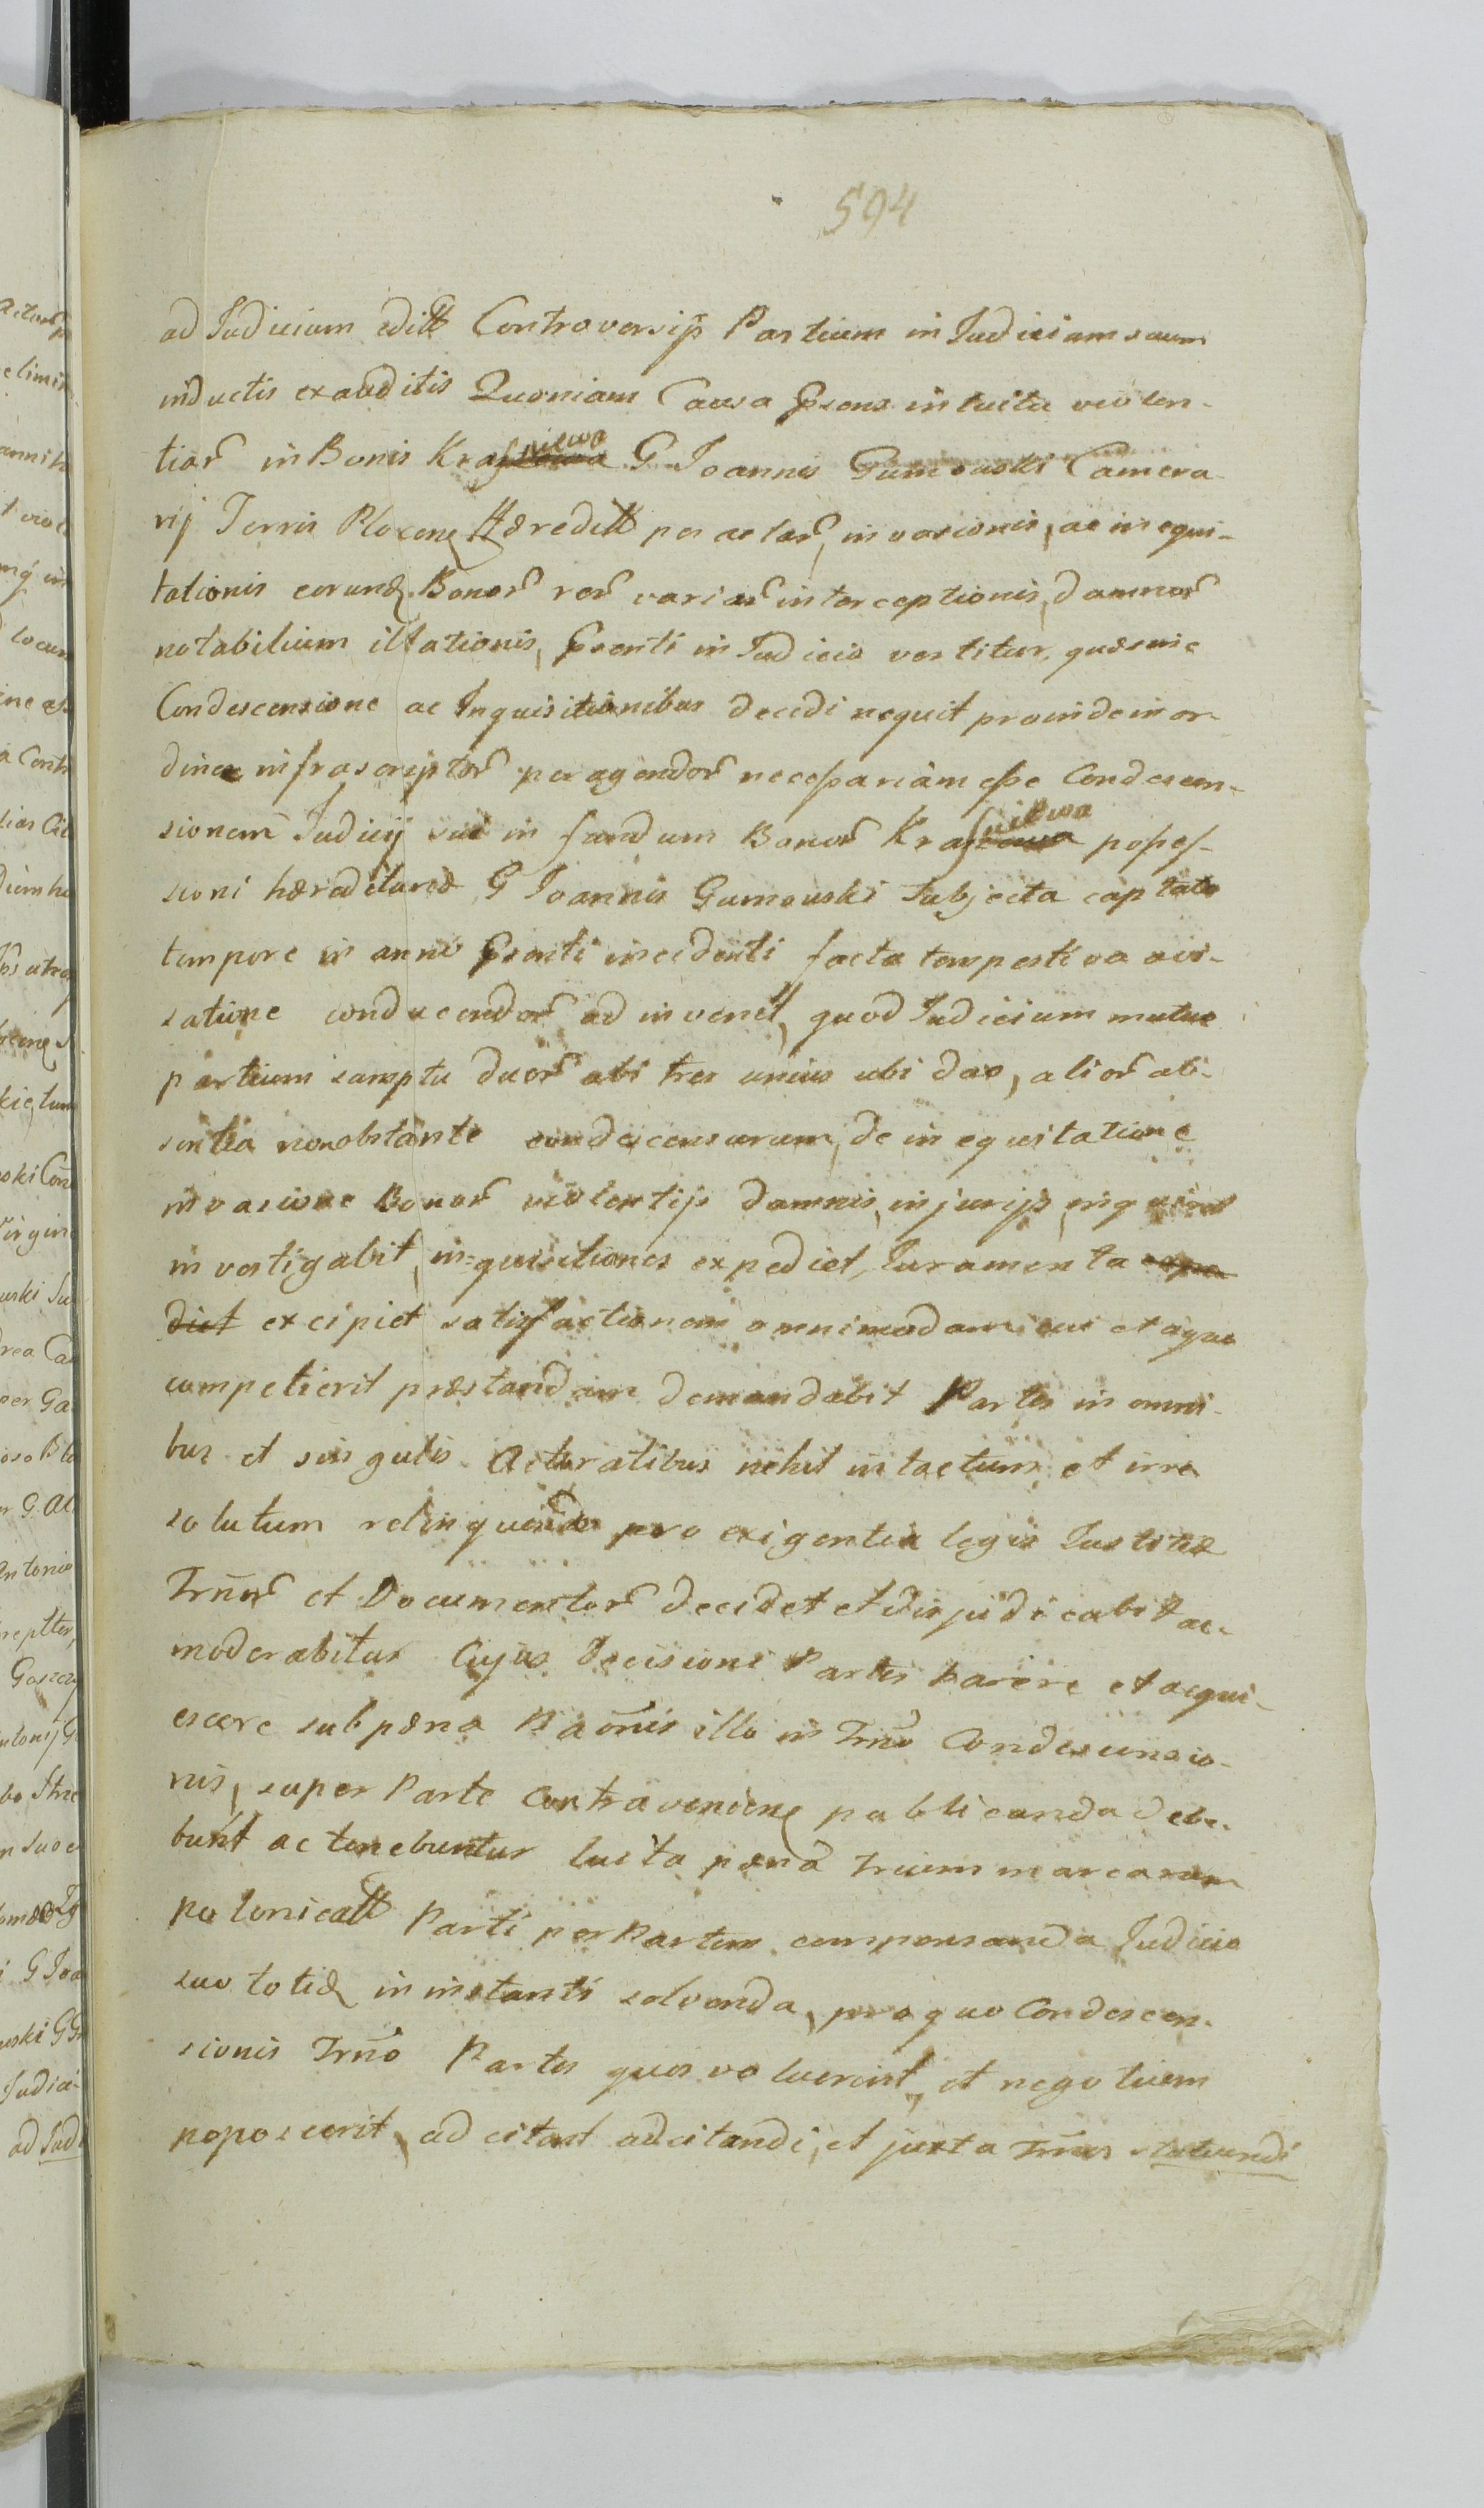 594
ad Judicium editt Controversijs Partium in Judiciam suum
inductis exauditis Quoniam Causa Psens intuitu violen-
tiar in Bonis Krasniewo G Joannis Gumowski Camera-
rij Terris Plocen Hæreditt per actar, invasionis, ac inequi-
tationis eorund Bonor rer variar interceptionis, damnor
notabilium illationis, Psenti in Judicio vertitur, quæ sine
Condescensione ac Inquisitionibus decidi nequit proinde in or-
dine infrascriptor peragendor necessariam esse Condescen-
sionem Judicij sui in fundum Bonor Krasniewo posses-
sioni hæreditariæ G Joannis Gumowski Subjecta captato
tempore in anno Psenti incidenti facta tempestiva avi-
satione conducendor ad invenit, quod Judicium mutuo
partium sumptu duor ubi tres unius ubi duo, alior ab-
sentia non obstante condescensurum, de inequitatione
invasione Bonor violentijs damnis, injurijs, inquiret
investigabit, in=quisitiones expediet, Juramenta expe
diet excipiet satisfactionem omnimodam cui et a quo
competierit præstandam demandabit Partes in omni-
bus et singulis Actoratibus nihil intactum et irre
solutum relinquendo pro exigentia legis Justitiæ
Trnor et Documentor decidet et disjudicabit ac-
moderabitur Cujus Decisioni Partes parere et acqui-
escere sub pæna Baonis illo in Trno Condescensio-
nis, super Parte Contravenien publicanda debe-
bunt ac tenebuntur luita pæna trium marcarum
polonicalt Parti per Partem compensanda Judicio
suo totid in instanti solvenda, pro quo Condescen-
sionis Trno Partes quos voluerint, et negotium
poposcerit, ad citant adcitandi, et juxta Trnos statuendi